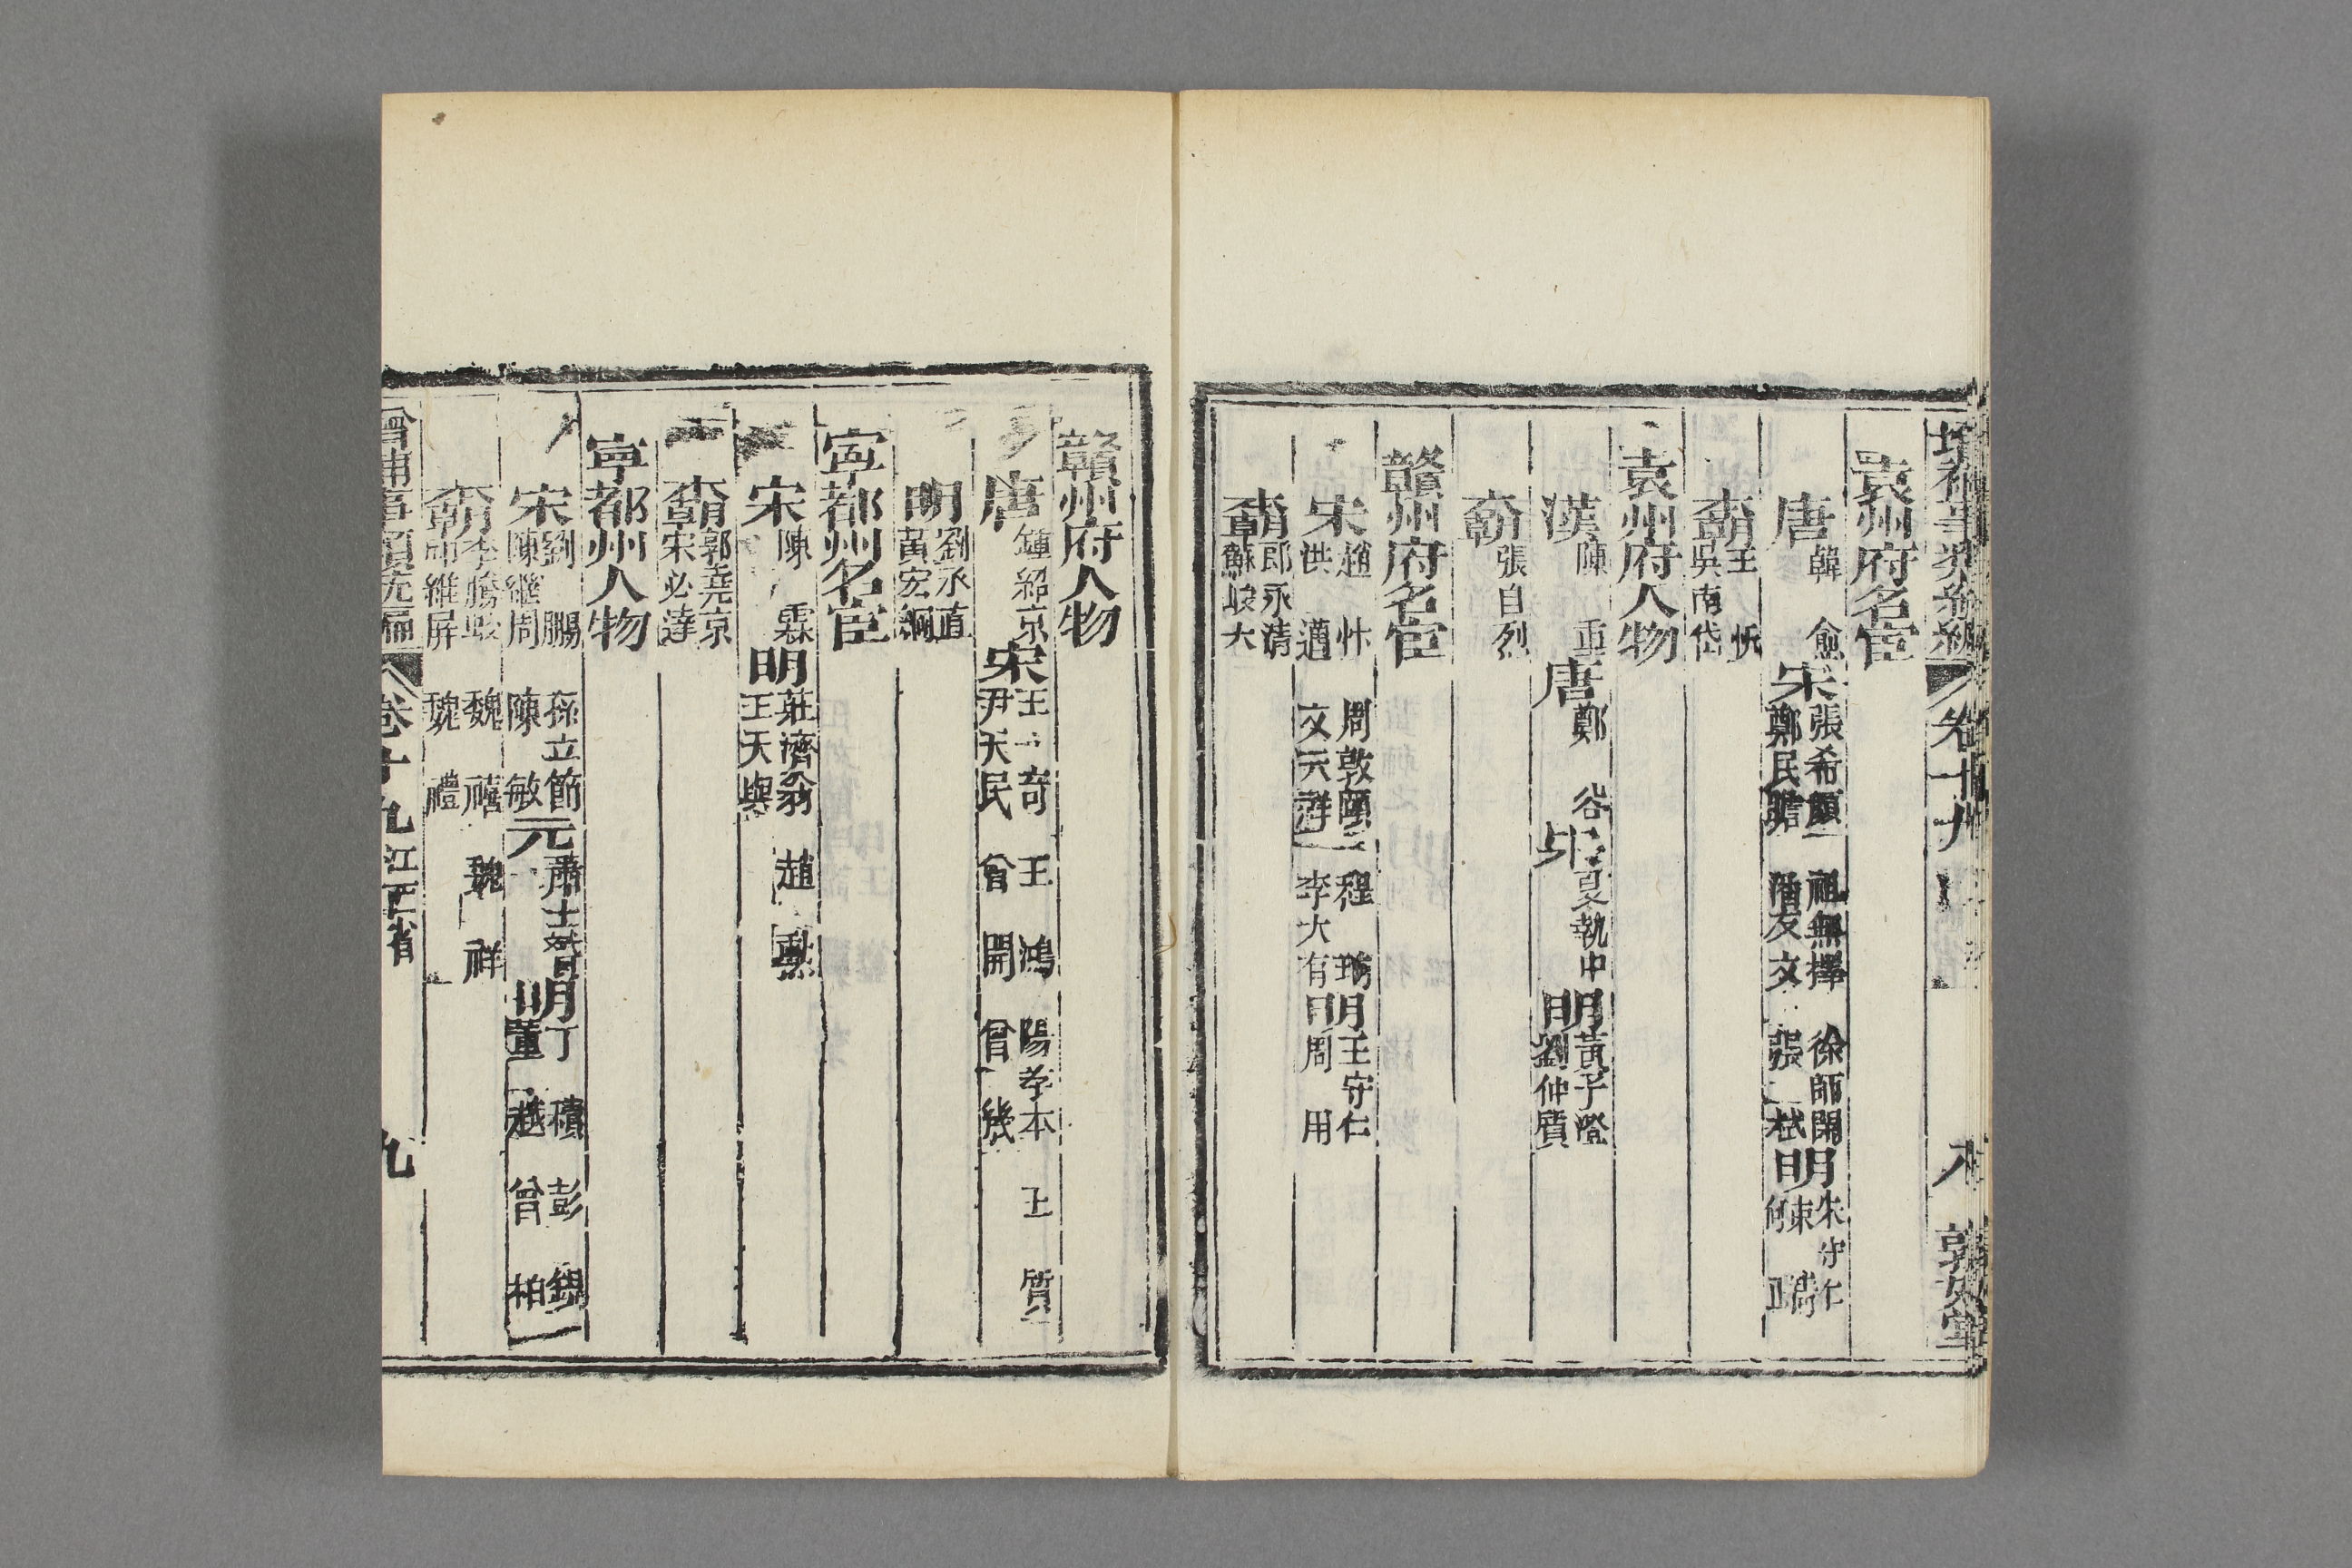 增補事類統編 卷十九 八 敦好堂
袁州府名宦
唐 韓愈 宋 張希顏 祖無擇 徐師閔 鄭民瞻 潘友文 張栻 明 朱守仁
王忻 吳南岱
袁州府人物
漢 陳重 唐 鄭谷 宋 夏執中 明 黃子澄 劉仲質
張自烈
贛州府名宦
宋 趙忭 周敦頤 程珦 洪邁 文天祥 李大有 明 王守仁 周用
郎永清 蘇峻大
贛州府人物
唐 鍾紹京 宋 王奇 王鴻 陽孝本 王質 尹天民 曾開 曾幾
明 劉丞直 黃宏綱
寧都州名宦
宋 陳霖 明 莊濟翁 趙勳 王天與
郭堯京 宋必達
寧都州人物
宋 劉鵬 孫立節 陳繼周 陳敏 元 蕭士贇 明 丁積 彭錦 董越 曾柏
李騰蛟 魏禧 魏祥 邱維屏 魏禮
增補事類統編 卷十九 江西省 九